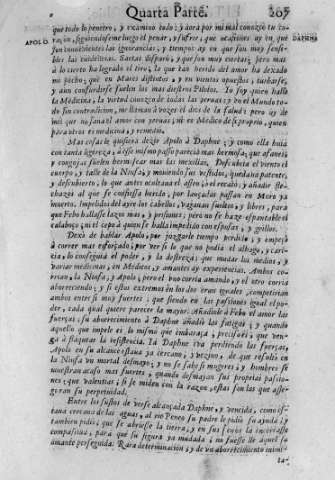 Quarta Parte. 207
que todo lo penetro, y examino todo; y aora por mi mal conozco tu co-
APOLO. raçon, siguiendose me luego el penar, y sufrir, que ocasiones ay en que DAPHNE
son convenientes las ignorancias; y tiempo ay en que son muy sensi-
bles las evidencias. Saetas disparò, y que son muy certeras; pero mas
à lo cierto ha logrado el tiro, la que tan herido del amor ha dexado
mi pecho; que en Mares distintos, y en vientos opuestos, turbarse,
y aun confundirse suelen los mas diestros Pilotos. Yo soy quien hallò
la Medicina, la virtud conozco de todas las yervas; y en el Mundo to-
do sin contradicion, me llaman à vozes el dios de la salud: pero ay de
mi que no sana el amor con yervas; ni es Medico de si proprio, quien
para otros es medicina, y remedio.
Mas cosas le quisiera dezir Apolo à Daphne; y como ella huìa
con tanta ligereza, à esse mismo passo parecia mas hermosa; que afanes,
y congojas suelen hermosear mas las mexillas. Descubria el viento el
cuerpo, y talle de la Ninfa, y moviendo sus vestidos, quedava patente,
y descubierto, lo que antes ocultara el asseo, y el recato; y añadir ste-
chazos al que se confiessa herido, por lançadas passan en Moro ya
muerto. Impelidos del ayre los cabellos, vagavan sueltos, y libres, para
que Febo hallasse lazos mas, y prisiones; pero no se haze espantable el
calaboço, ni el cepo à quien se halla impedido con esposas, y grillos.
Dexò de hablar Apolo, por juzgarlo tiempo perdido, y empezò
à correr mas esforçado, por ver si lo que no podia el alhago, y cari-
cia, lo conseguia el poder, y la destreza: que mudar los medios, y
variar medicinas, en Medicos, y amantes es experiencias. Ambos cor-
rian, la Ninfa, y Apolo; pero el uno corria amando, y el otro corria
aborreciendo; y si estos extremos en los dos eran iguales, competirian
ambos entre si muy fuertes: que siendo en las passiones igual el po-
der, cada qual quiere parecer la mayor. Añadiale à Febo el amor las
fuerças; su aborrecimiento à Daphne añadia las fatigas; y quando
aquello que impele es lo mismo que embaraça; preciso es, que ven-
ga à flaquear la resistencia. Ià Daphne iva perdiendo las fuerças,
Apolo en su alcance estava ya cercano, y vezino, de que resultò en
la Ninfa un mortal desmayo; y no se sabe si mugeres, y hombres se
muestran acaso mas fuertes, quando desmayan sus proprias passio-
nes; que valentias, si se miden con la razon, estas son las que asse-
guran su perpetuidad.
Entre los sustos de verse alcançada Daphne, y vencida, como es-
tava cercana de las aguas, al rio Peneo su padre le pidiò su ayuda; y
tambien pidiò, que se abriesse la tierra, y en sus senos la hiziesse
compassiva, para què su figura ya mudada, no fuesse de aquel su
amante perseguida. Rara determinacion, y de un aborrecimiento inimi-
ta-